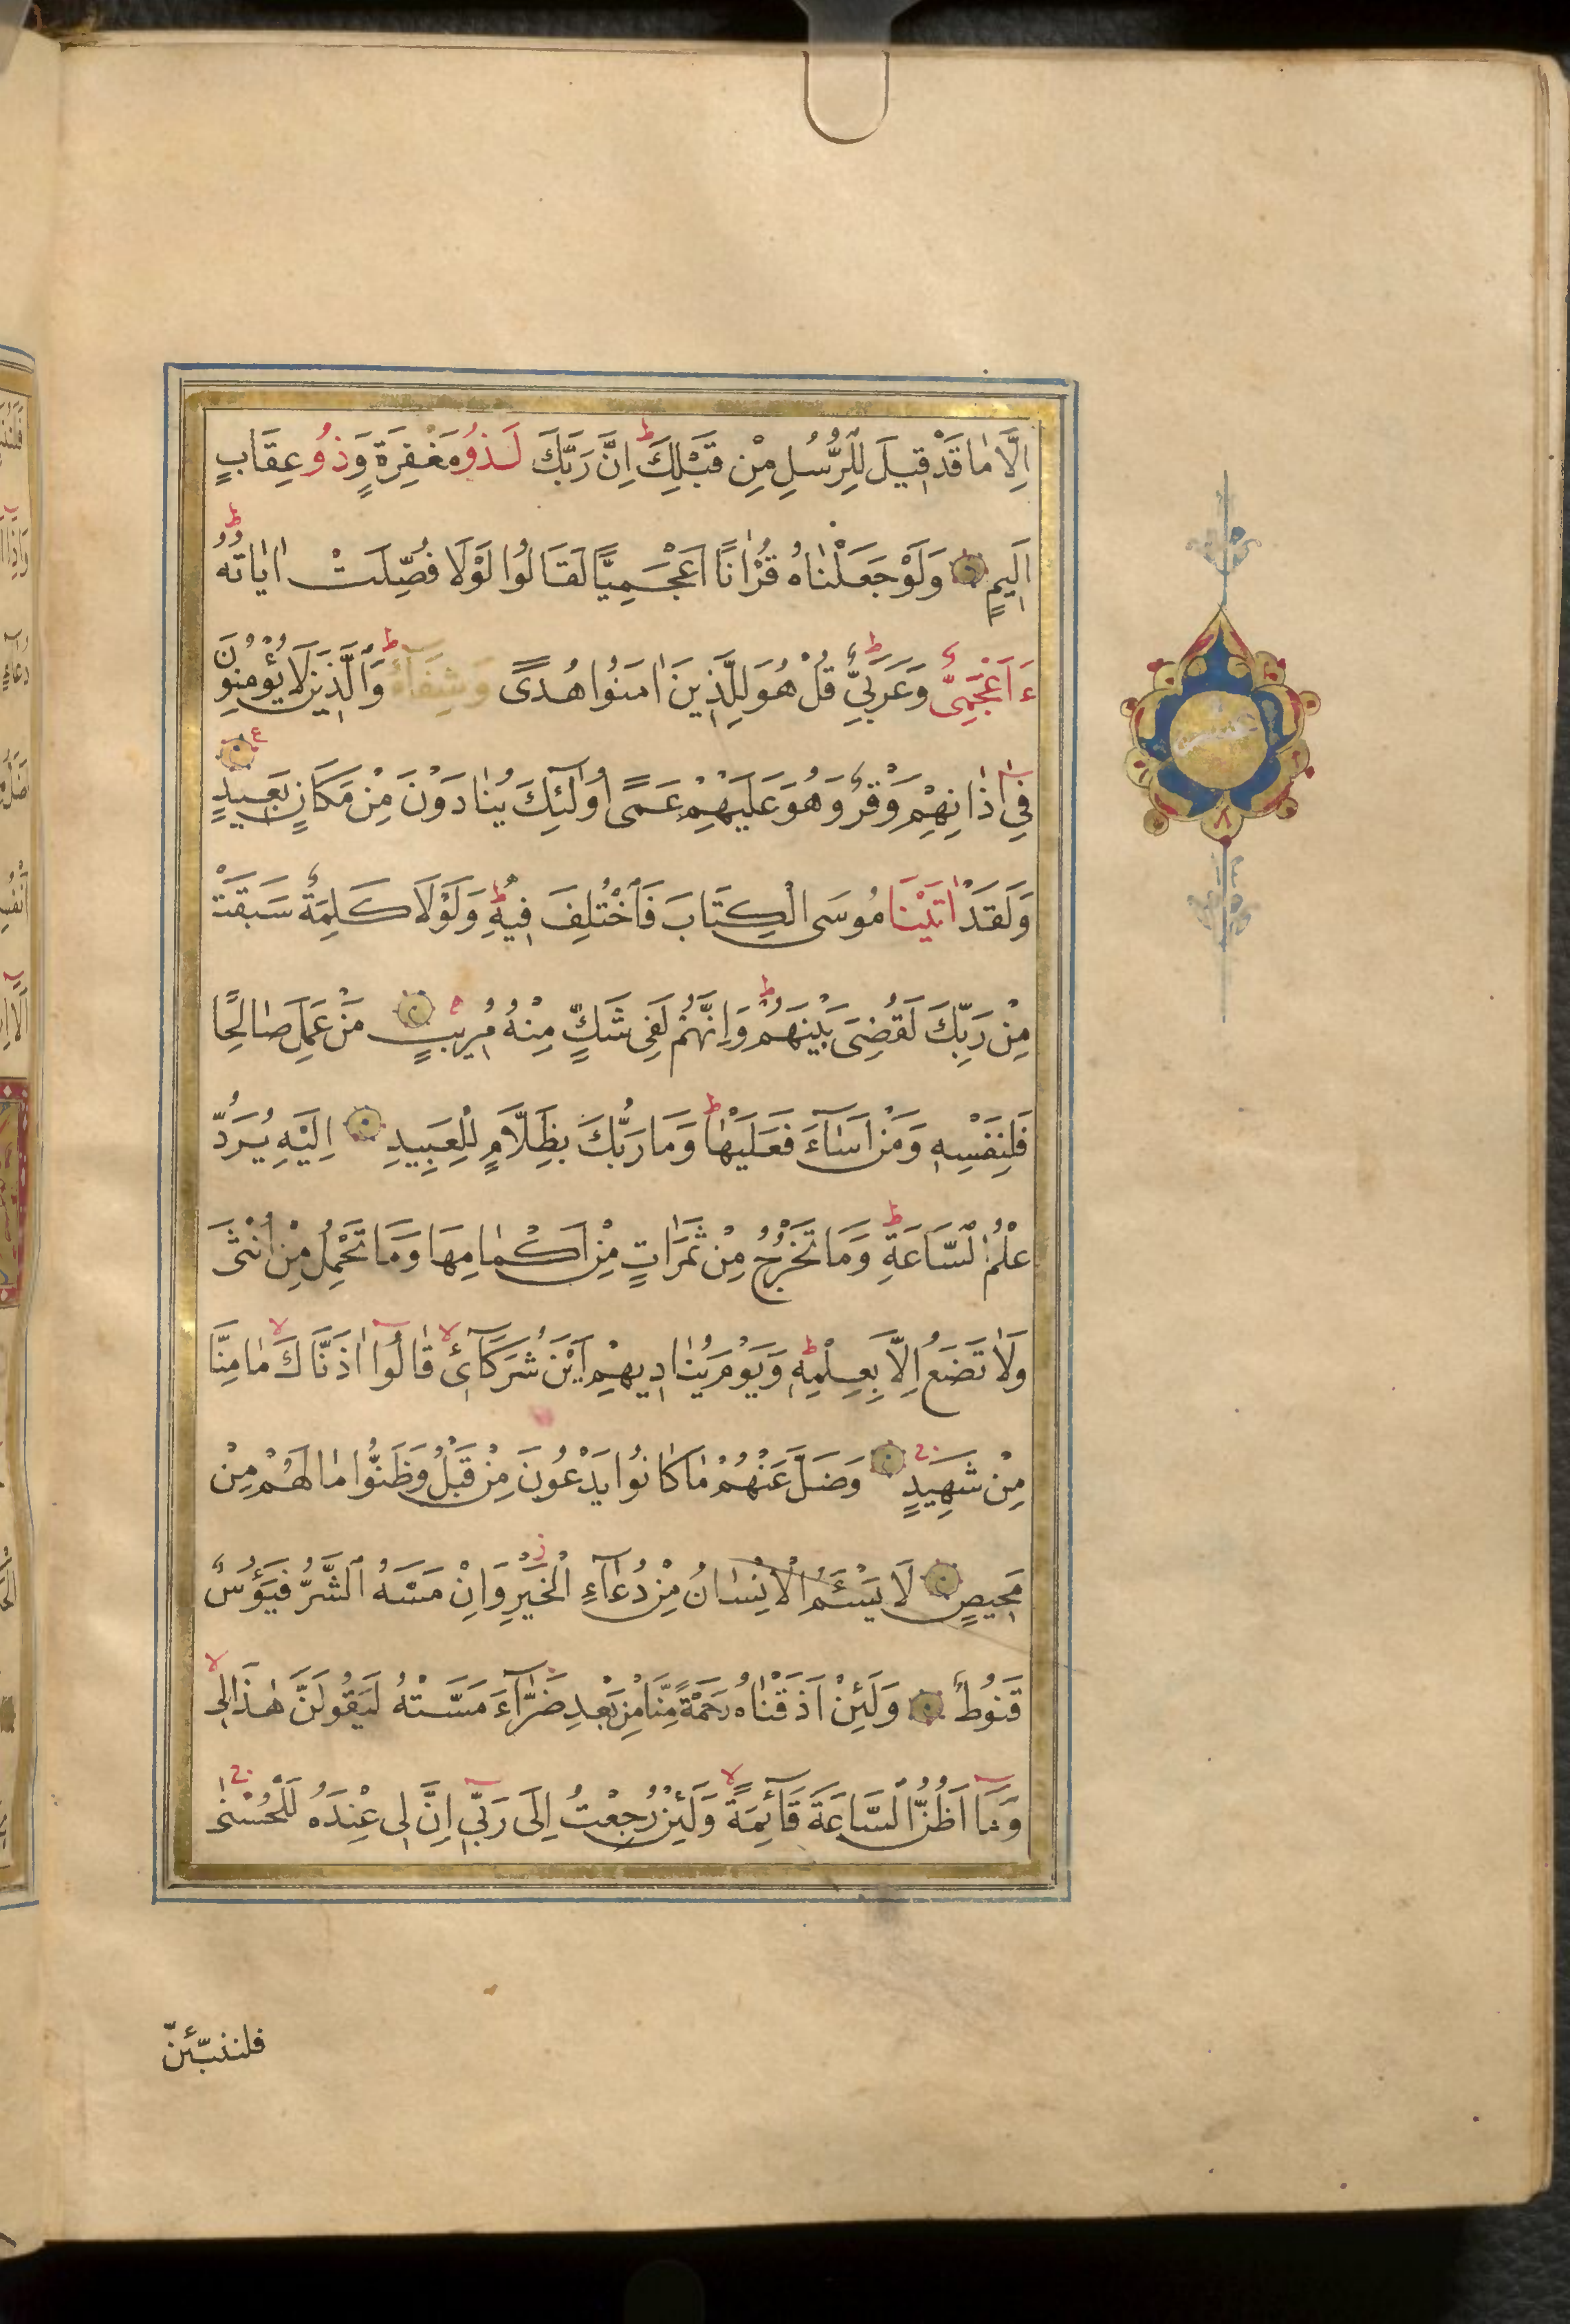 اِلَّا مَا قَدْ قِيلَ لِلرُّسُلِ مِنْ قَبْلِكَ ط اِنَّ رَبَّكَ لَذُو مَغْفِرَةٍ وَذُو عِقَابٍ
اَلِيمٍ وَلَوْ جَعَلْنَاهُ قُرْاٰنًا اَعْجَمِيًّا لَقَالُوا لَوْلَا فُصِّلَتْ اٰيَاتُهُ ط
ءَاَعْجَمِىٌّ وَعَرَبِىٌّ ط قُلْ هُوَ لِلَّذِينَ اٰمَنُوا هُدًى وَشِفَآءٌ ط وَالَّذِينَ لَا يُؤْمِنُونَ
فِى اٰذَانِهِمْ وَقْرٌ وَهُوَ عَلَيْهِمْ عَمًى اُولٰٓئِكَ يُنَادَوْنَ مِنْ مَكَانٍ بَعِيدٍ ع
وَلَقَدْ اٰتَيْنَا مُوسَى الْكِتَابَ فَاخْتُلِفَ فِيهِ ط وَلَوْلَا كَلِمَةٌ سَبَقَتْ
مِنْ رَبِّكَ لَقُضِىَ بَيْنَهُمْ ط وَاِنَّهُمْ لَفِى شَكٍّ مِنْهُ مُرِيبٍ مَنْ عَمِلَ صَالِحًا
فَلِنَفْسِهِ وَمَنْ اَسَآءَ فَعَلَيْهَا ط وَمَا رَبُّكَ بِظَلَّامٍ لِلْعَبِيدِ اِلَيْهِ يُرَدُّ
عِلْمُ السَّاعَةِ ط وَمَا تَخْرُجُ مِنْ ثَمَرَاتٍ مِنْ اَكْمَامِهَا وَمَا تَحْمِلُ مِنْ اُنْثٰى
وَلَا تَضَعُ اِلَّا بِعِلْمِهِ ط وَيَوْمَ يُنَادِيهِمْ اَيْنَ شُرَكَآئِ لا قَالُوا اٰذَنَّاكَ لا مَا مِنَّا
مِنْ شَهِيدٍ ج وَضَلَّ عَنْهُمْ مَا كَانُوا يَدْعُونَ مِنْ قَبْلُ وَظَنُّوا مَا لَهُمْ مِنْ
مَحِيصٍ لَا يَسْئَمُ الْاِنْسَانُ مِنْ دُعَآءِ الْخَيْرِ ز وَاِنْ مَسَّهُ الشَّرُّ فَيَؤُسٌ
قَنُوطٌ وَلَئِنْ اَذَقْنَاهُ رَحْمَةً مِنَّا مِنْ بَعْدِ ضَرَّآءَ مَسَّتْهُ لَيَقُولَنَّ هٰذَا لِى لا
وَمَآ اَظُنُّ السَّاعَةَ قَآئِمَةً لا وَلَئِنْ رُجِعْتُ اِلٰى رَبِّى اِنَّ لِى عِنْدَهُ لَلْحُسْنٰى ج
عشر
فلننبّئنّ